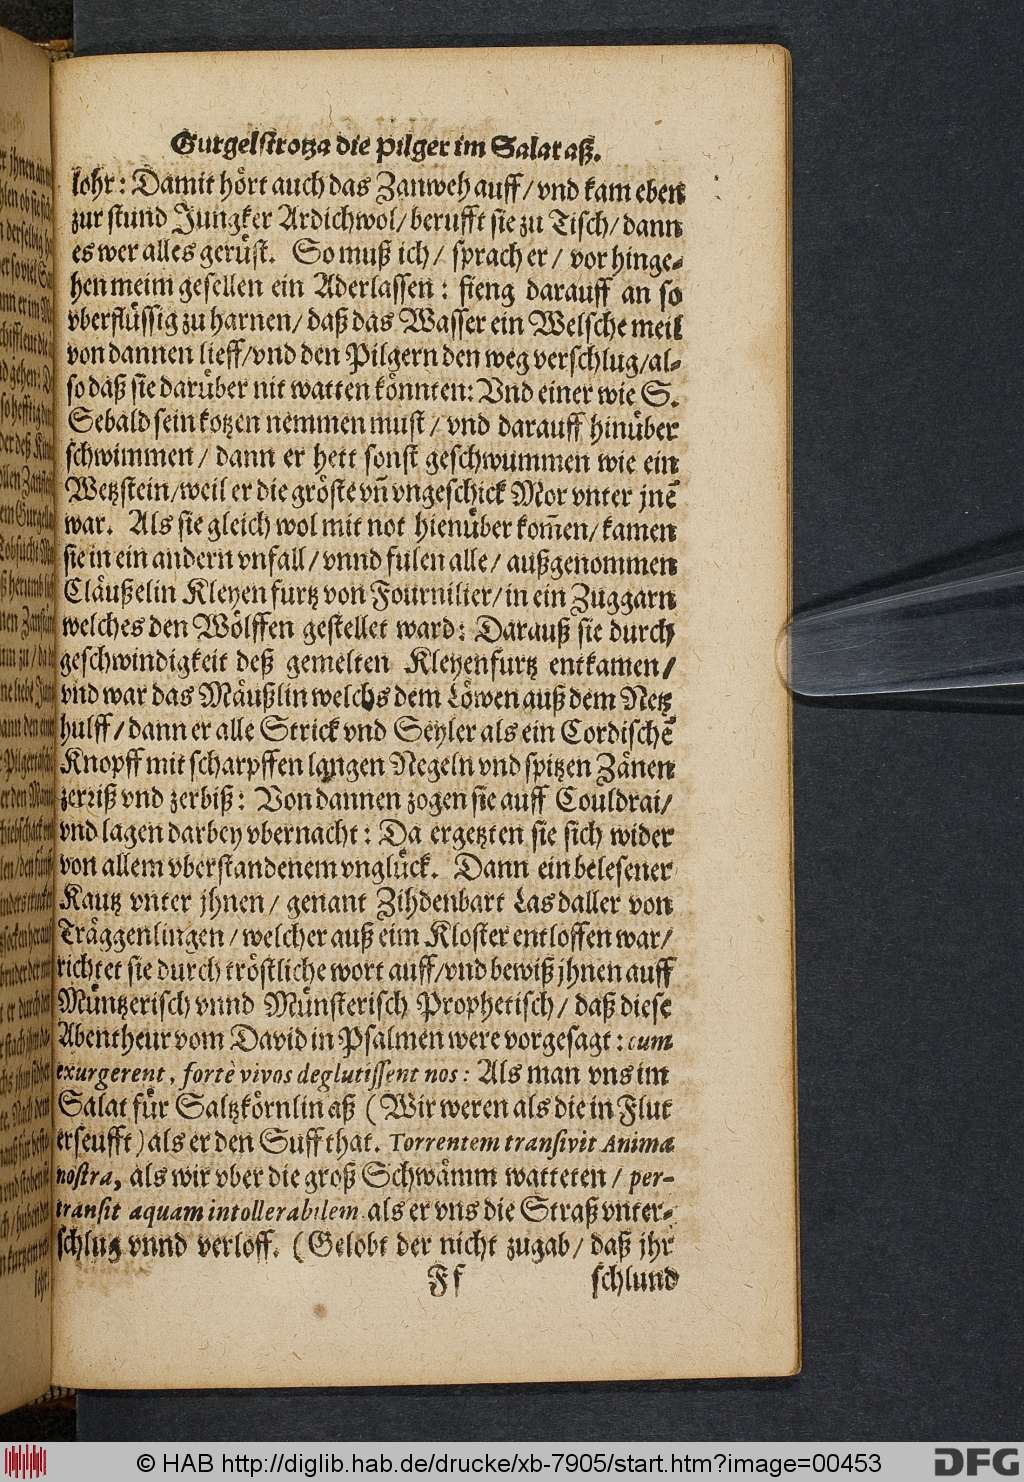 Gurgelstrotza die Pilger im Salat aß.
lohr: Damit hört auch das Zanweh auff/ vnd kam eben
zur stund Jungker Ardichwol/ berufft sie zu Tisch/ dann
es wer alles gerüst. So muß ich/ sprach er/ vor hinge-
hen meim gesellen ein Aderlassen: fieng darauff an so
vberflüssig zu harnen/ daß das Wasser ein Welsche meil
von dannen lieff/ vnd den Pilgern den weg verschlug/ al-
so daß sie darüber nit watten könnten: Vnd einer wie S.
Sebald sein kotzen nemmen must/ vnd darauff hinüber
schwimmen/ dann er hett sonst geschwummen wie ein
Wetzstein/ weil er die gröste vñ vngeschick Mor vnter jnẽ
war. Als sie gleich wol mit not hienüber kom̃en/ kamen
sie in ein andern vnfall/ vnnd fulen alle/ außgenommen
Cläußelin Kleyenfurtz von Fournilier/ in ein Zuggarn
welches den Wölffen gestellet ward: Darauß sie durch
geschwindigkeit deß gemelten Kleyenfurtz entkamen/
vnd war das Mäußlin welchs dem Löwen auß dem Netz
hulff/ dann er alle Strick vnd Seyler als ein Cordischẽ
Knopff mit scharpffen langen Negeln vnd spitzen Zänen
zerriß vnd zerbiß: Von dannen zogen sie auff Couldrai/
vnd lagen darbey vbernacht: Da ergetzten sie sich wider
von allem vberstandenem vnglück. Dann ein belesener
Kautz vnter jhnen/ genant Zihdenbart Lasdaller von
Träggenlingen/ welcher auß eim Kloster entloffen war/
richtet sie durch tröstliche wort auff/ vnd bewiß jhnen auff
Müntzerisch vnnd Münsterisch Prophetisch/ daß diese
Abentheur vom David in Psalmen were vorgesagt: cum
exurgerent, fortè vivos deglutissent nos: Als man vns im
Salat für Saltzkörnlin aß (Wir weren als die in Flut
erseufft) als er den Suff that. Torrentem transivit Anima
nostra, als wir vber die groß Schwämm watteten/ per-
transit aquam intollerabilem als er vns die Straß vnter-
schlug vnnd verloff. (Gelobt der nicht zugab/ daß jhr
Ff schlund
© HAB http://diglib.hab.de/drucke/xb-7905/start.htm?image=00453
DFG